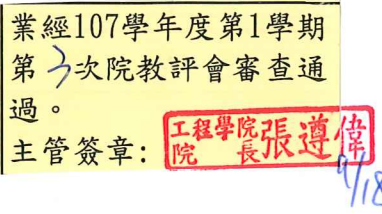 業經107學年度第1學期
第3次院教評會審查通
過。
主管簽章：工程學院院長張遵偉
9/18